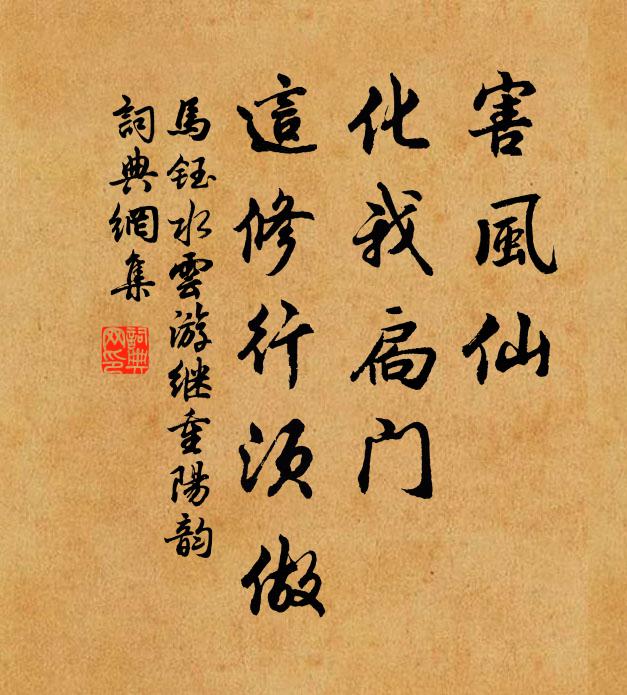 害風仙
化我扃門
這修行須做
馬鈺水雲游继重陽韵
詞典網集
詞典网印